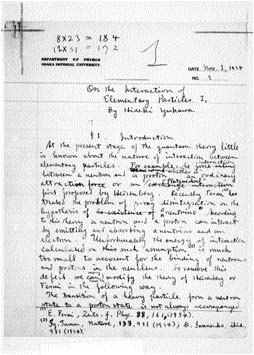 8 x 23 = 184
12 x 51 = 192
1
DEPARTMENT OF PHYSICS
OSAKA IMPERIAL UNIVERSITY.
DATE Nov. 1, 1934
NO. 1
On the Interaction of
Elementary Particles. I.
By Hideki Yukawa
§1. Introduction
At the present stage of the quantum theory little
is known about the nature of interaction between
elementary particles. For example, the interaction
force acting
between a neutron and a proton an ordinary
attraction force or an exchange interaction
first proposed by Heisenberg. Recently Fermi has
treated the problem of β-ray disintegration on the
hypothesis of the existence of neutrino. According
to this theory a neutron and a proton can interact
by emitting and absorbing a neutrino and an
electron. Unfortunately the energy of interaction
calculated on such assumption is much
too small to account for the binding of neutrons
and protons in the nucleus. To remove this
defect we can modify the theory of Heisenberg or
Fermi in the following way.
The transition of a heavy particle from a neutron
state to a proton state is not always accompanied
E. Fermi, Zeits. f. Phys. 88, 161, (1934).
Ig. Tamm, Nature, 133, 981 (1934), D. Iwanenko, ibid.
981 (1934).